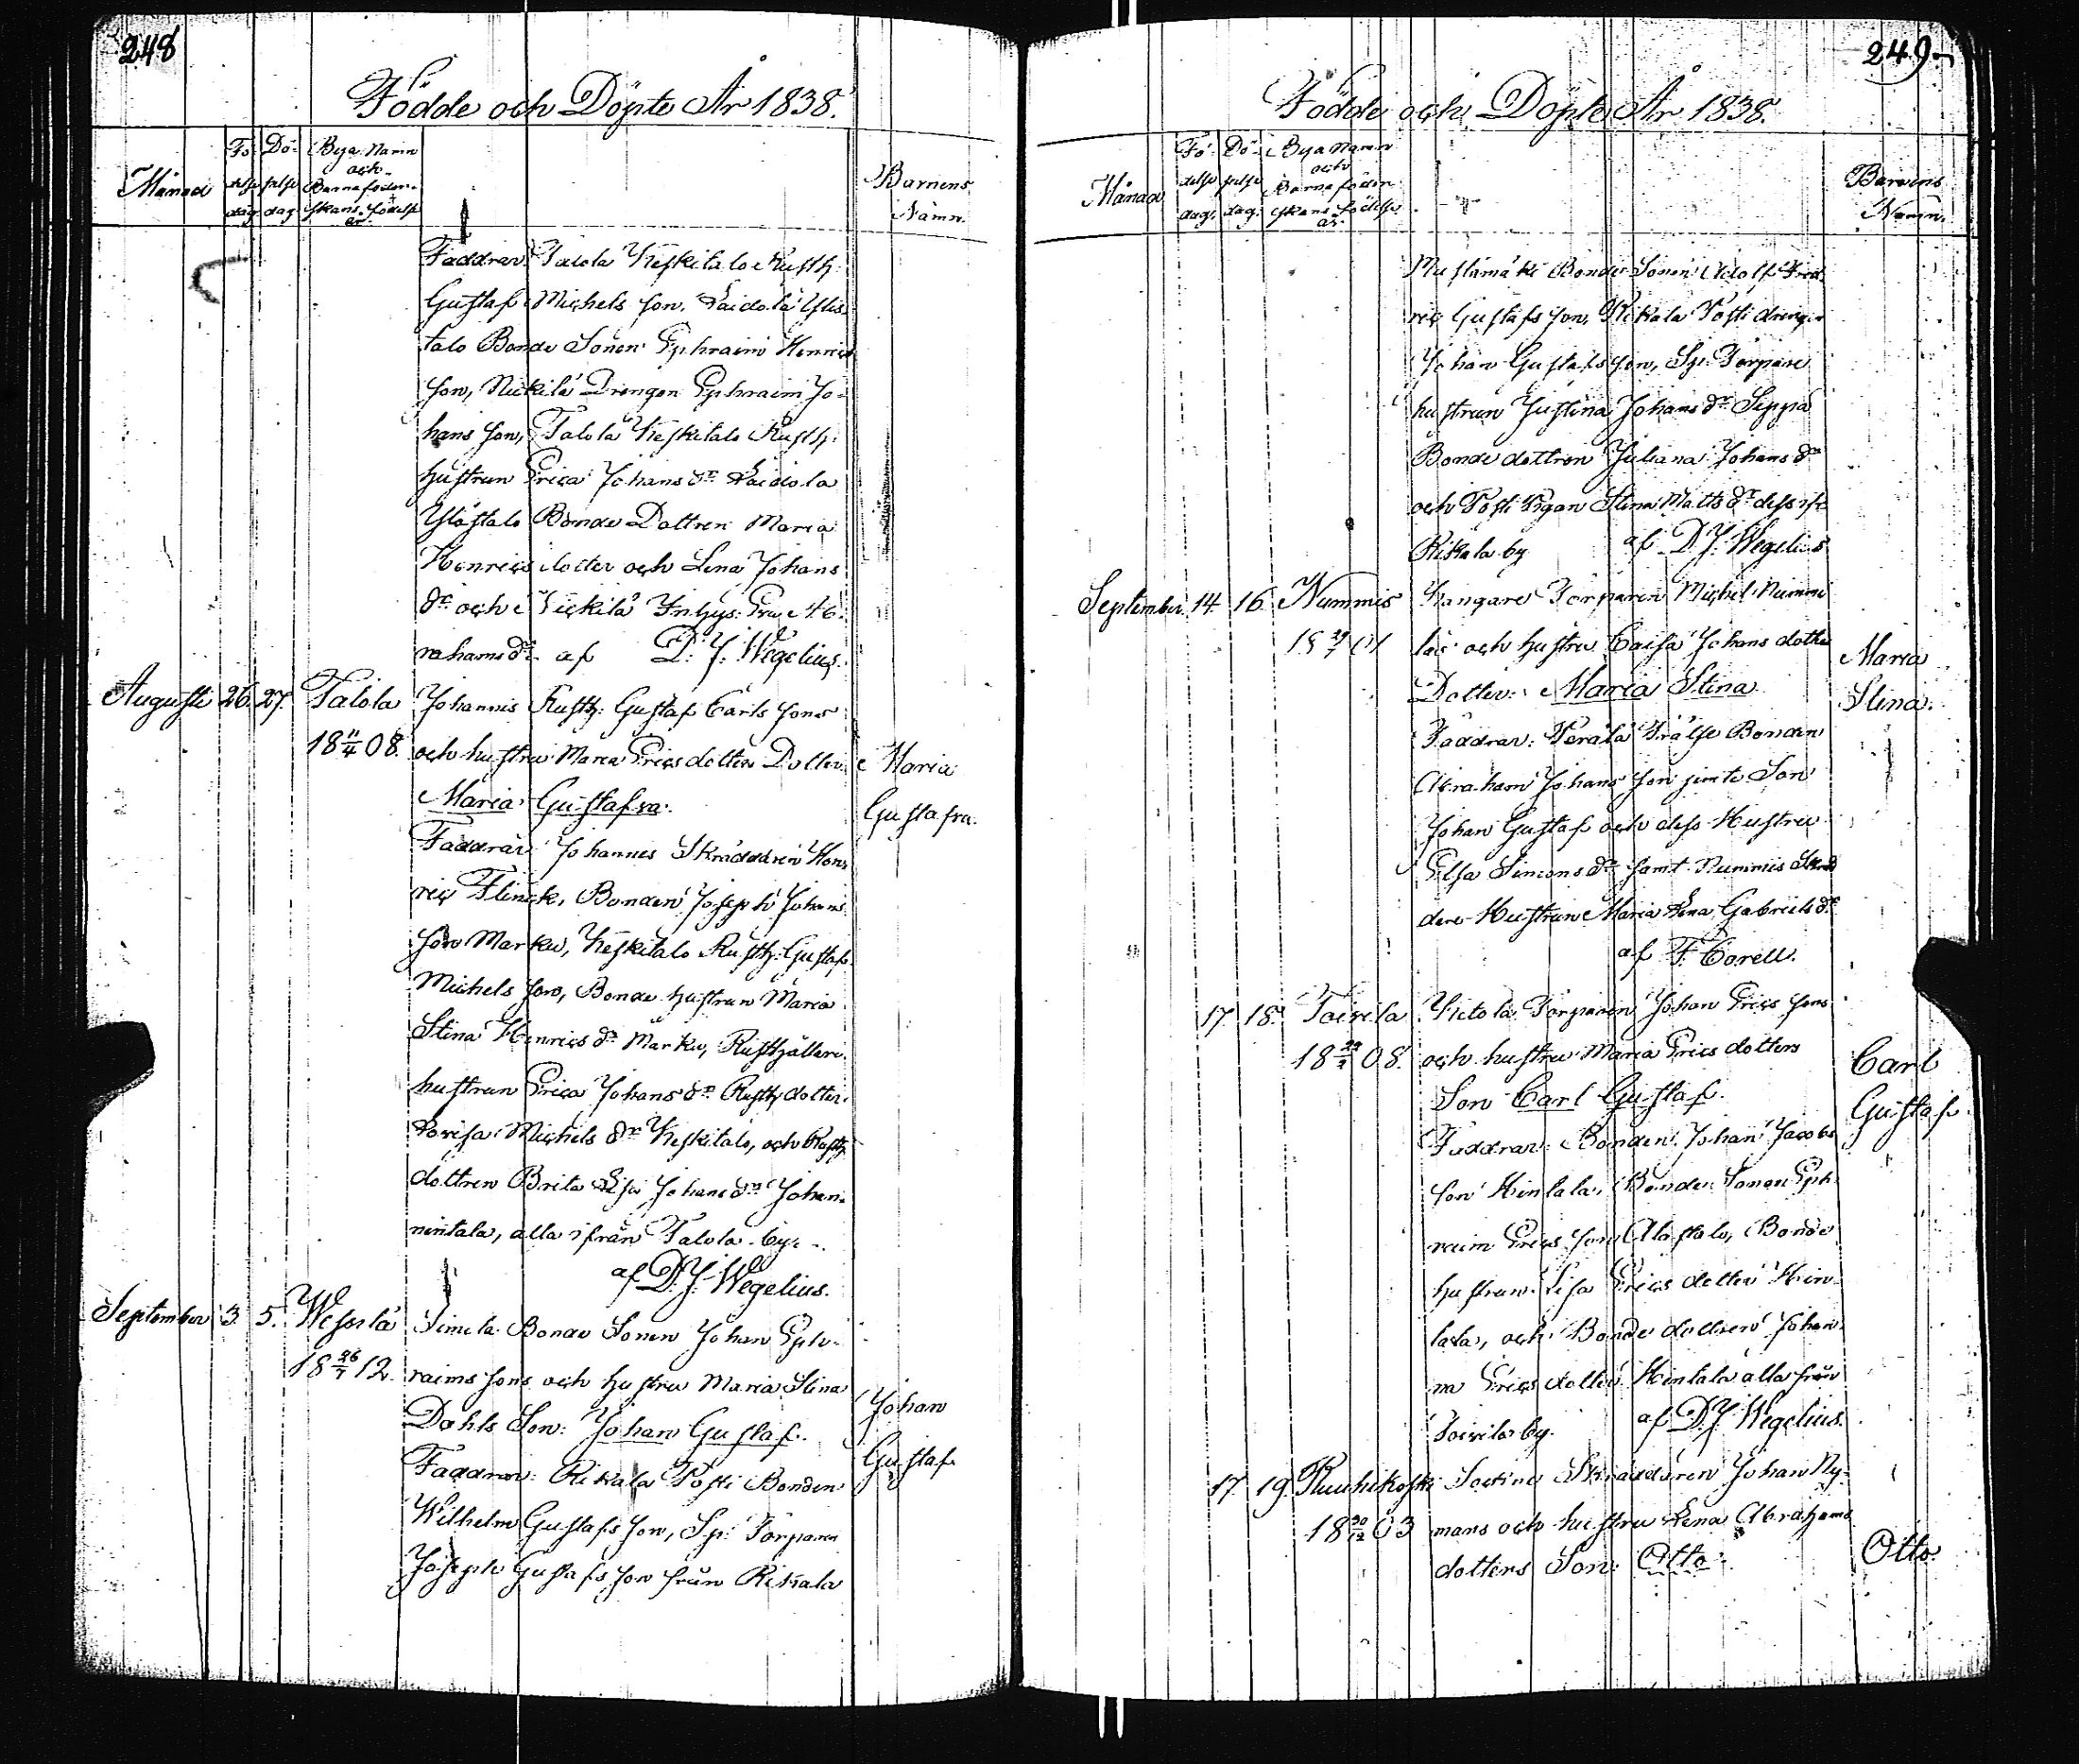 248
Födde och Döpte År 1838.
Månad
Fö-
delse
dag.
Dö-
pelse
dag.
Bya Namn
och
Barnaföder-
skans födelse
år.
Barnens
Namn.
Faddrar: Talola Keskitalo Rusth:
Gustaf Michels son, Laidola Ylis
talo Bonde Sonen Ephraim Henrics
son, Nickilä Drengen Ephraim Jo-
hans son, Talola Keskitalo Rusth:
hustrun Erica Johans dr Laidola
Ylistalo Bonde Dottren Maria
Henrics dotter och Lena Johans
dr och Nickilä Inhys: Eva Ab-
rahams dr af D. J. Wegelius.
Augusti 26. 27. Talola Johannis Rusth: Gustaf Carls sons
18 11/4 08. och hustru Maria Erics dotters Dotter Maria
Maria Gustafva. Gustafva.
Faddrar: Johannes Skräddren Hen-
ric Flinck, Bonden Joseph Johans
son Marku, Keskitalo Rusth: Gustaf
Michels son, Bonde hustrun Maria
Stina Henrics dr Marku, Rusthållare
hustrun Erica Johans dr Rusth dotter
Lovisa Michels dr Keskitalo, och Rusth
dottren Brita Lisa Johans dr Johan-
nintalo, alla ifrån Talola by.
af D. J. Wegelius.
September 3. 5. Simola Bonde Sonen Johan Eph-
18 26/7 12. raims sons och hustru Maria Stina
Dahls Son: Johan Gustaf. Johan
Gustaf
Faddrar: Rikala Tosti Bonden
Wilhelm Gustafs son, Sp: Torparen
Joseph Gustafs son från Rikala
249
Födde och Döpte År 1838.
Månad
Fö-
delse
dag.
Dö-
pelse
dag.
Bya Namn
och
Barnaföder-
skans födelse
år.
Barnens
Namn.
Mustamäki Bonde Sonen Adolf Fred-
ric Gustafs son, Rikala Tosti drengen
Johan Gustafs son, Sp: Torpare
hustrun Justina Johans dr Seppä
Bonde dottren Juliana Johans dr
och Tosti Pigan Stina Matts dr
Rikala by af D. J. Wegelius
September 14. 16. Nummis Kangare Torparen Michel Nummi
och hustru Caisa Johans dotter Maria
Dotter: Maria Stina Stina.
Faddrar: Perälä Frälse Bonden
Abraham Johans son jemte Son
Johan Gustaf och dess Hustru
Elsa Simons dr samt Nummis
Hustrun Maria Lena Gabriels dr
af F. Corell.
17. 18. Toivila Torparen Johan Erics sons
08. och hustru Maria Erics dotters Carl
Son Carl Gustaf. Gustaf.
Faddrar: Bonden Johan Jacobs
son Hintala, Bonde Sonen Eph-
raim Erics son Alastalo, Bonde
hustrun Lisa Erics dotter Hin-
tala, och Bonde dottren Johan-
na Erics dotter Hintala alla från
Toivila by. af D. J. Wegelius.
17. 19. Kuuhikoski Skräddaren Johan Ny-
18 30/12 03 mans och hustru Lena Abrahams
dotters Son: Otto. Otto.